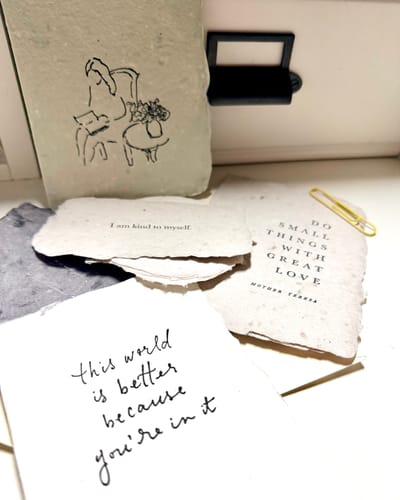 I am kind to myself.
DO
SMALL
THINGS
WITH
GREAT
LOVE
MOTHER TERESA
this world
is better
because
you're in it